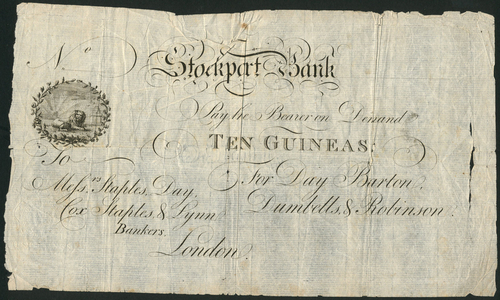 No
Stockport Bank
Pay the Bearer on Demand
TEN GUINEAS.
To
Messrs. Staples, Day,
Cox Staples & Lynn
Bankers
London.
For Day Barton
Dumbells, & Robinson.